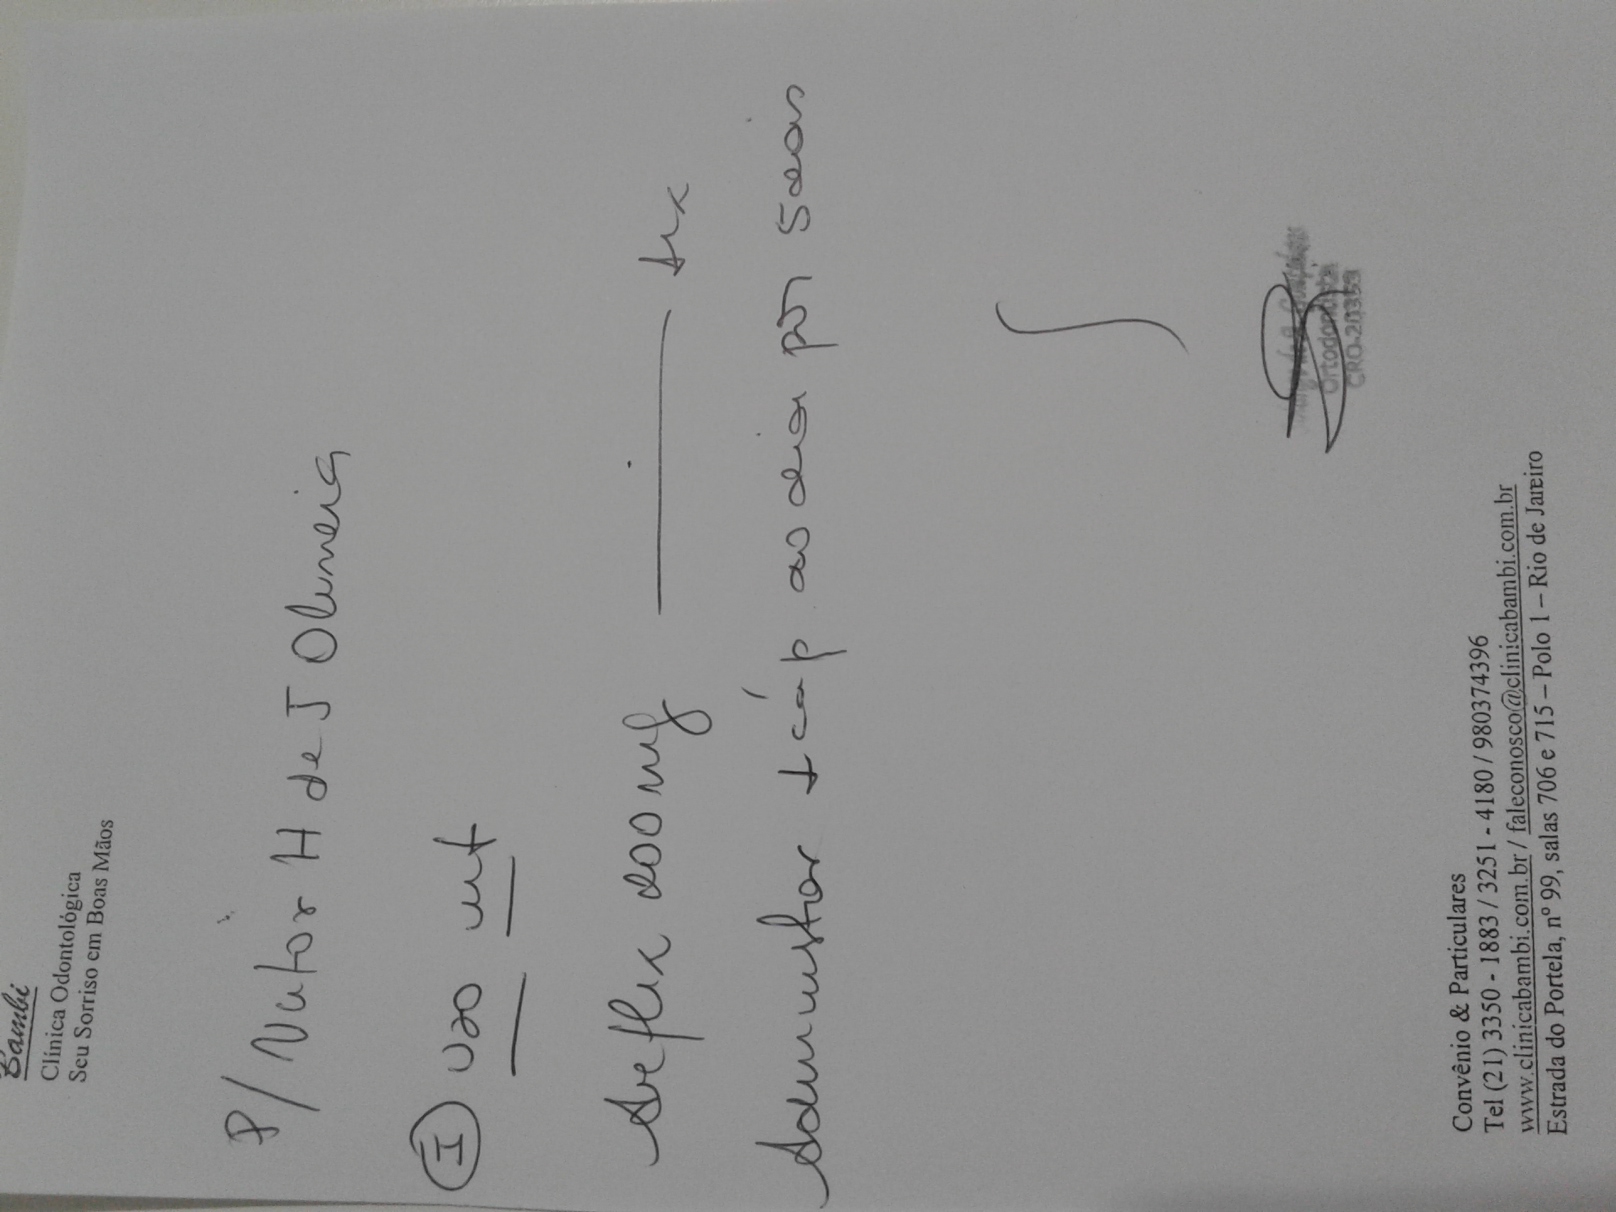 Bambi
Clínica Odontológica
Seu Sorriso em Boas Mãos
P/ Vitor H de J Oliveira
I uso int
Arflex 200 mg ——— 1 cx
Administrar 1 cáp ao dia por 5 dias
Ortodontista
CRO-20353
Convênio & Particulares
Tel (21) 3350 - 1883 / 3251 - 4180 / 980374396
www.clinicabambi.com.br / faleconosco@clinicabambi.com.br
Estrada do Portela, nº 99, salas 706 e 715 – Polo 1 – Rio de Janeiro